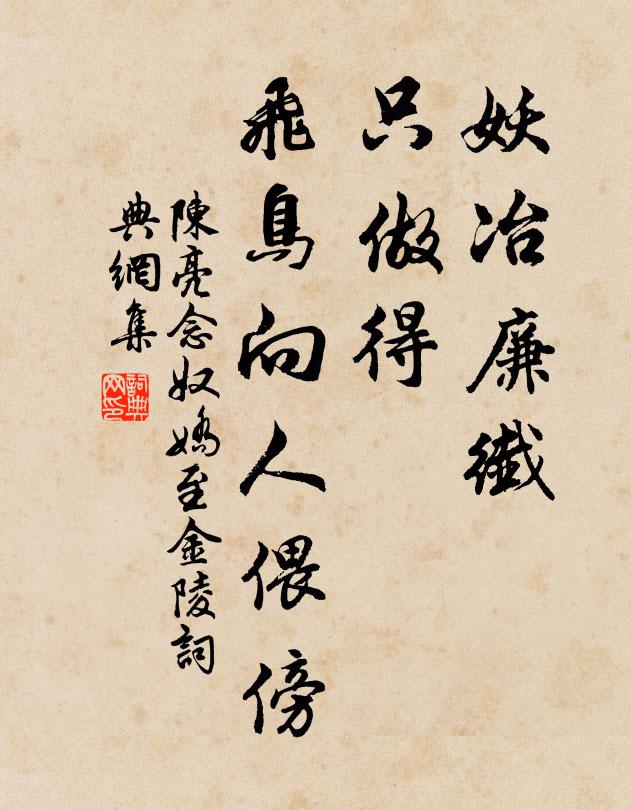 妖冶廉纖
只做得
飛鳥向人偎傍
陳亮念奴嬌至金陵詞
典網集
詞典
网印